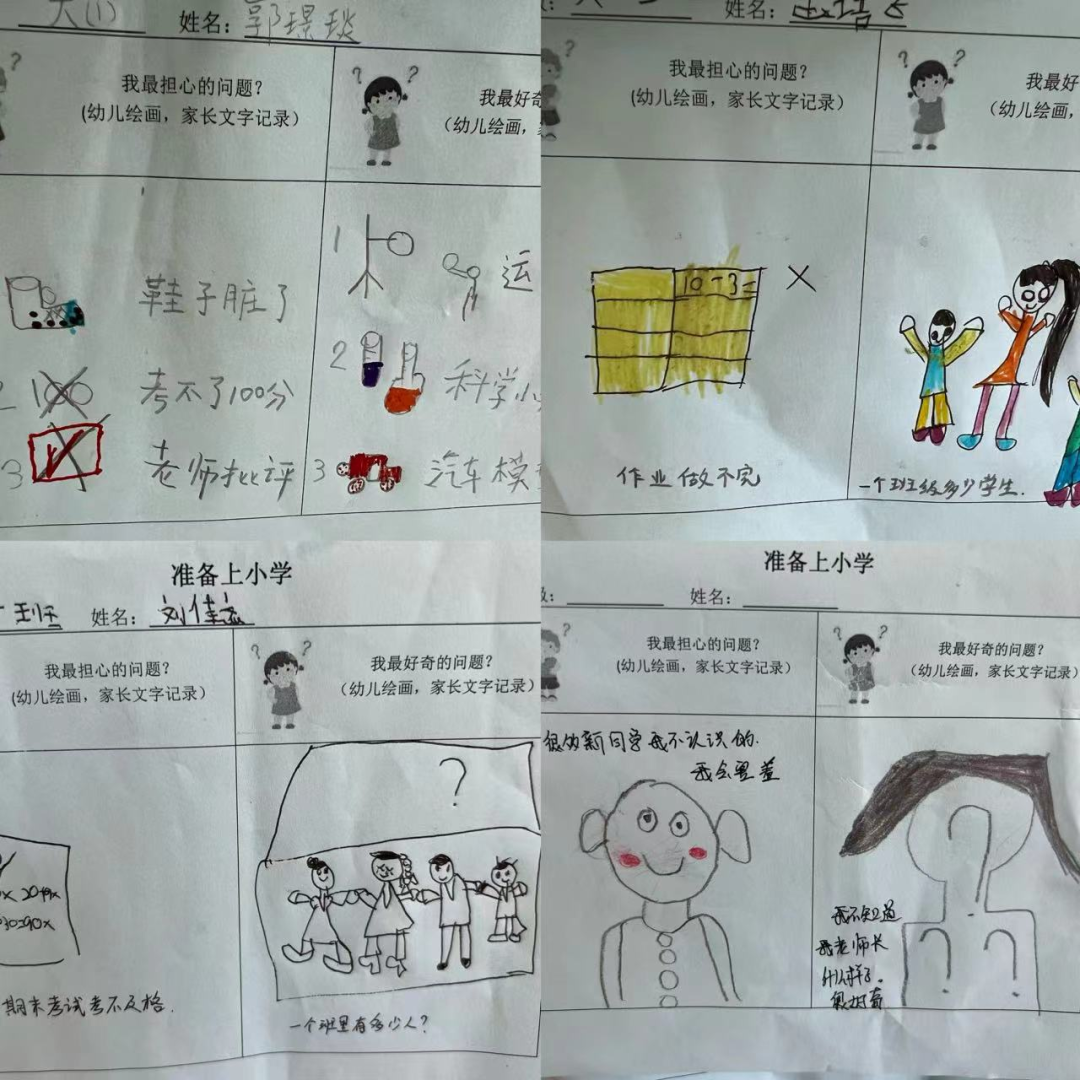 大(1) 姓名：郭璟琰
我最担心的问题？
(幼儿绘画，家长文字记录)
我最好奇
（幼儿绘画，
鞋子脏了
2 100 考不了100分
3 老师批评
1 运
2 科学小
3 汽车模型
姓名：
我最担心的问题？
(幼儿绘画，家长文字记录)
我最好
（幼儿绘画，
10-3=
作业做不完
一个班级多少学生.
准备上小学
班 姓名：刘佳
我最担心的问题？
(幼儿绘画，家长文字记录)
我最好奇的问题？
（幼儿绘画，家长文字记录)
?
期末考试考不及格.
一个班里有多少人？
准备上小学
姓名：
我最担心的问题？
(幼儿绘画，家长文字记录)
我最好奇的问题？
（幼儿绘画，家长文字记录)
新同学我不认识的.
我会害羞
?
? ?
我不知道
我老师长
什么样子.
很好奇